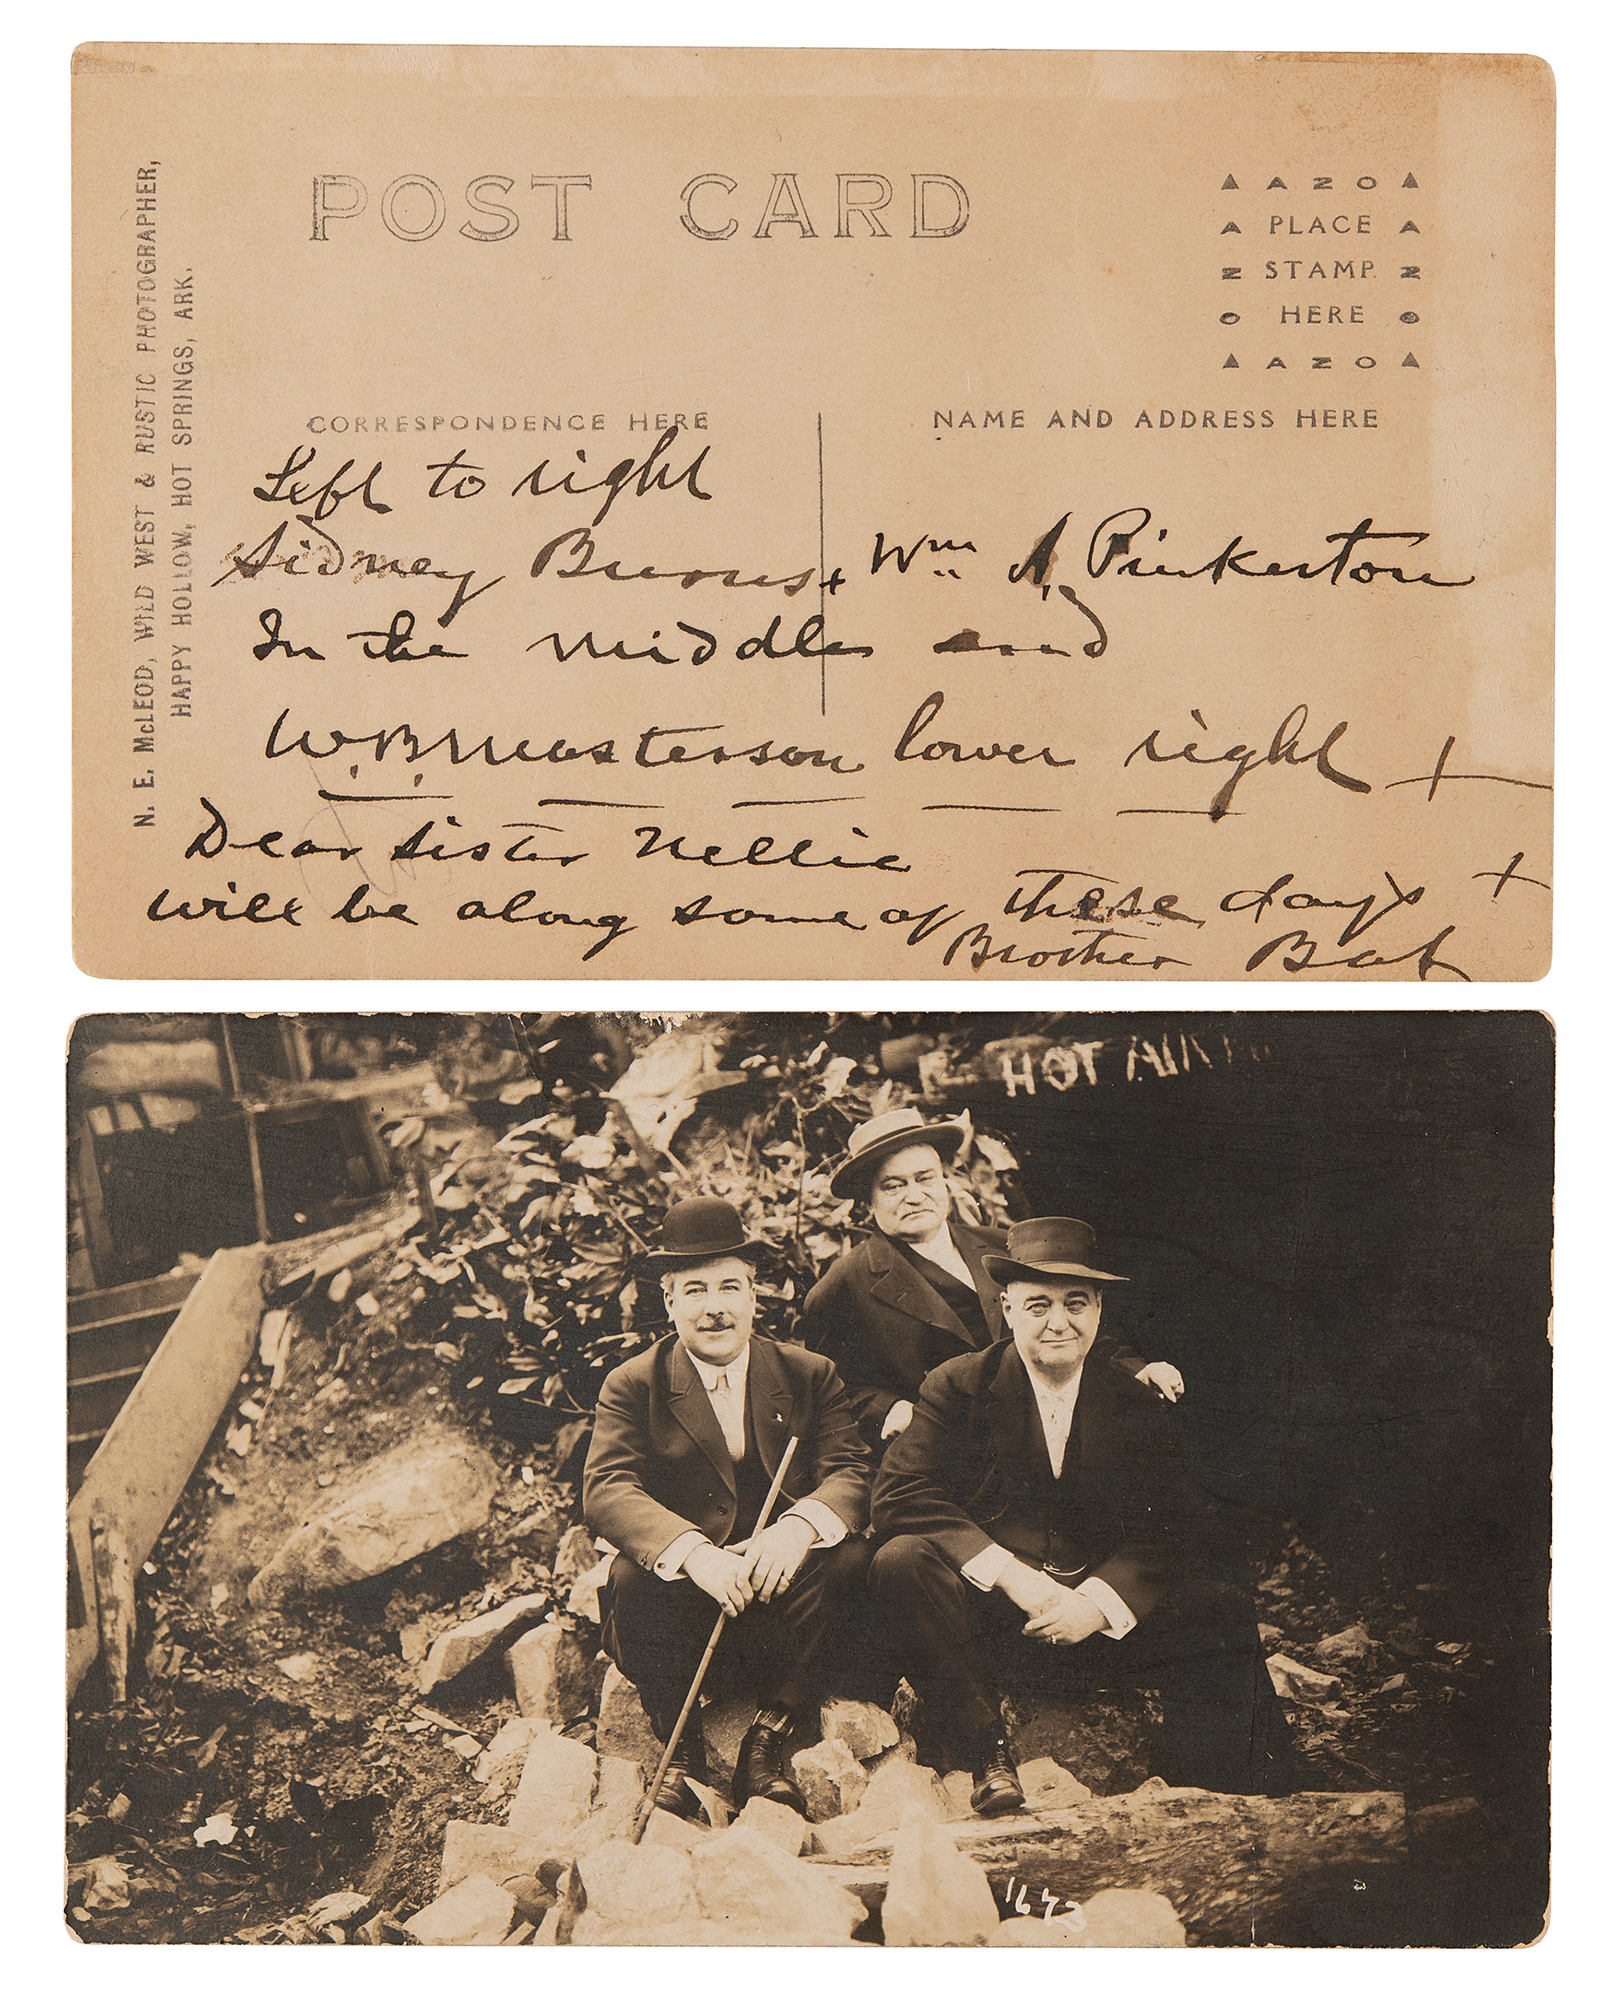 N. E. McLEOD, WILD WEST & RUSTIC PHOTOGRAPHER,
HAPPY HOLLOW, HOT SPRINGS, ARK.
POST CARD
AZO
PLACE
STAMP
HERE
AZO
CORRESPONDENCE HERE
NAME AND ADDRESS HERE
Left to right
Sidney Burns + Wm A. Pinkerton
In the middle and
W. B. Masterson lower right +
Dear Sister Nellie
will be along some of these days +
Brother Bat
HOT AIR
1673